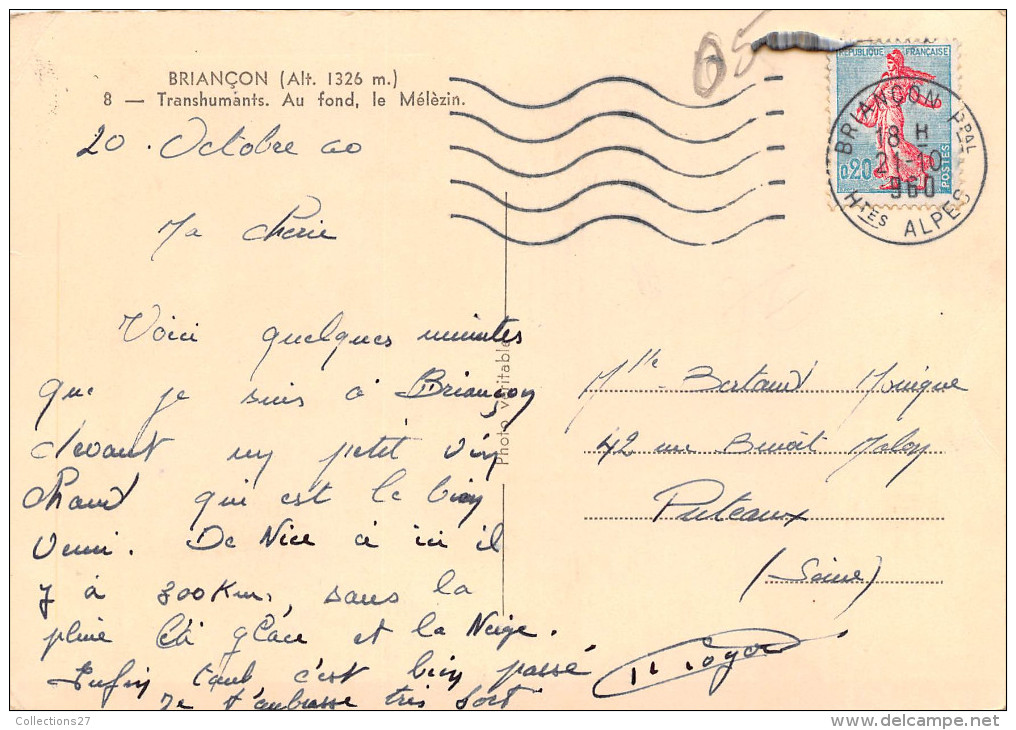 BRIANÇON (Alt. 1326 m.)
8 — Transhumants. Au fond, le Mélèzin.
05
REPUBLIQUE FRANÇAISE
0,20
POSTES
BRIANÇON PPAL
18 H
21-10
960
HTES ALPES
20 . Octobre 60
Ma Cherie
Voici quelques minutes
que je suis à Briançon
devant un petit vin
Chaud qui est le bien
venu. De Nice à ici il
y à 300 Km, sous la
pluie la glace et la Neige.
Enfin tout c'est bien passé
Je t'embrasse très fort
Roger
Photo véritable
Mlle Bertaud Monique
42 rue Benoît Malon
Puteaux
(Seine)
Collections27
delcampe.net